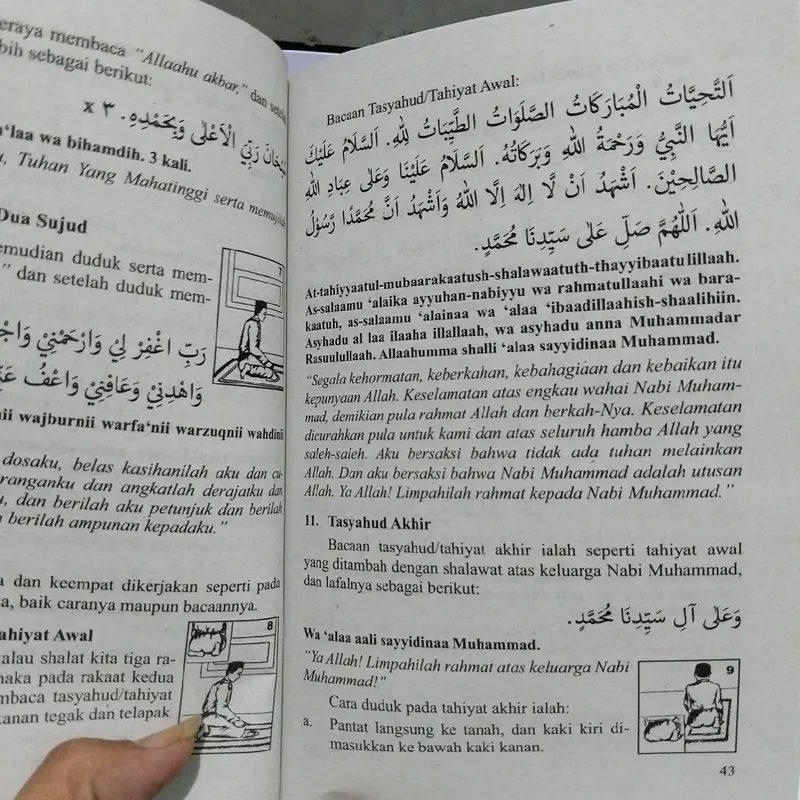 eraya membaca "Allaahu akbar," dan setelah
bih sebagai berikut:
رَبِّيَ الْاَعْلٰى وَبِحَمْدِهِ. ٣ x
a‘laa wa bihamdih. 3 kali.
, Tuhan Yang Mahatinggi serta memuji
Dua Sujud
emudian duduk serta mem-
" dan setelah duduk mem-
7
رَبِّ اغْفِرْ لِيْ وَارْحَمْنِيْ
وَاهْدِنِيْ وَعَافِنِيْ وَاعْفُ
nii wajburnii warfa‘nii warzuqnii wahdinii
dosaku, belas kasihanilah aku dan cu-
ranganku dan angkatlah derajatku dan
, dan berilah aku petunjuk dan berilah
berilah ampunan kepadaku."
a dan keempat dikerjakan seperti pada
a, baik caranya maupun bacaannya.
ahiyat Awal
alau shalat kita tiga ra-
maka pada rakaat kedua
mbaca tasyahud/tahiyat
kanan tegak dan telapak
8
Bacaan Tasyahud/Tahiyat Awal:
اَلتَّحِيَّاتُ الْمُبَارَكَاتُ الصَّلَوَاتُ الطَّيِّبَاتُ لِلّٰهِ. اَلسَّلَامُ عَلَيْكَ
اَيُّهَا النَّبِيُّ وَرَحْمَةُ اللهِ وَبَرَكَاتُهُ. اَلسَّلَامُ عَلَيْنَا وَعَلٰى عِبَادِ اللهِ
الصَّالِحِيْنَ. اَشْهَدُ اَنْ لَّا اِلٰهَ اِلَّا اللهُ وَاَشْهَدُ اَنَّ مُحَمَّدًا رَّسُوْلُ
اللهِ. اَللّٰهُمَّ صَلِّ عَلٰى سَيِّدِنَا مُحَمَّدٍ.
At-tahiyyaatul-mubaarakaatush-shalawaatuth-thayyibaatulillaah.
As-salaamu ‘alaika ayyuhan-nabiyyu wa rahmatullaahi wa bara-
kaatuh, as-salaamu ‘alainaa wa ‘alaa ‘ibaadillaahish-shaalihiin.
Asyhadu al laa ilaaha illallaah, wa asyhadu anna Muhammadar
Rasuulullaah. Allaahumma shalli ‘alaa sayyidinaa Muhammad.
"Segala kehormatan, keberkahan, kebahagiaan dan kebaikan itu
kepunyaan Allah. Keselamatan atas engkau wahai Nabi Muham-
mad, demikian pula rahmat Allah dan berkah-Nya. Keselamatan
dicurahkan pula untuk kami dan atas seluruh hamba Allah yang
saleh-saleh. Aku bersaksi bahwa tidak ada tuhan melainkan
Allah. Dan aku bersaksi bahwa Nabi Muhammad adalah utusan
Allah. Ya Allah! Limpahilah rahmat kepada Nabi Muhammad."
11. Tasyahud Akhir
Bacaan tasyahud/tahiyat akhir ialah seperti tahiyat awal
yang ditambah dengan shalawat atas keluarga Nabi Muhammad,
dan lafalnya sebagai berikut:
وَعَلٰى آلِ سَيِّدِنَا مُحَمَّدٍ.
Wa ‘alaa aali sayyidinaa Muhammad.
"Ya Allah! Limpahilah rahmat atas keluarga Nabi
Muhammad!"
Cara duduk pada tahiyat akhir ialah:
a. Pantat langsung ke tanah, dan kaki kiri di-
masukkan ke bawah kaki kanan.
9
43